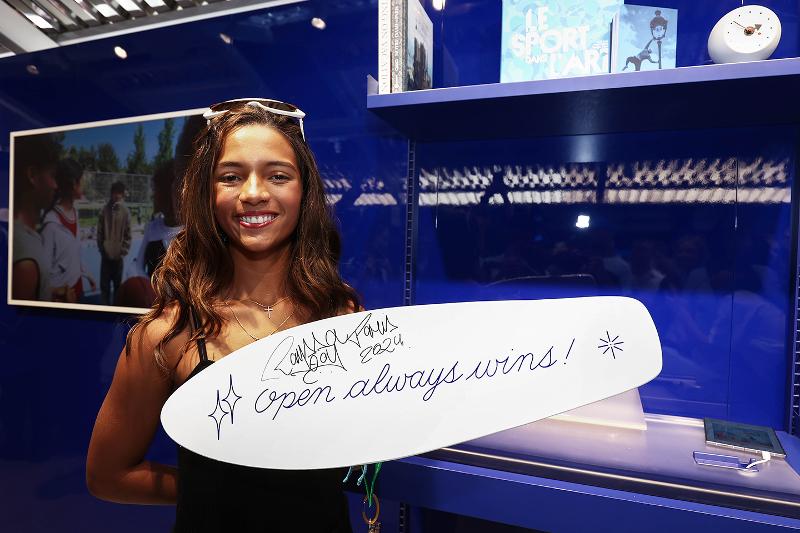 LE
SPORT
DANS
L'ART
Rayssa
Leal
Paris
2024
open always wins!